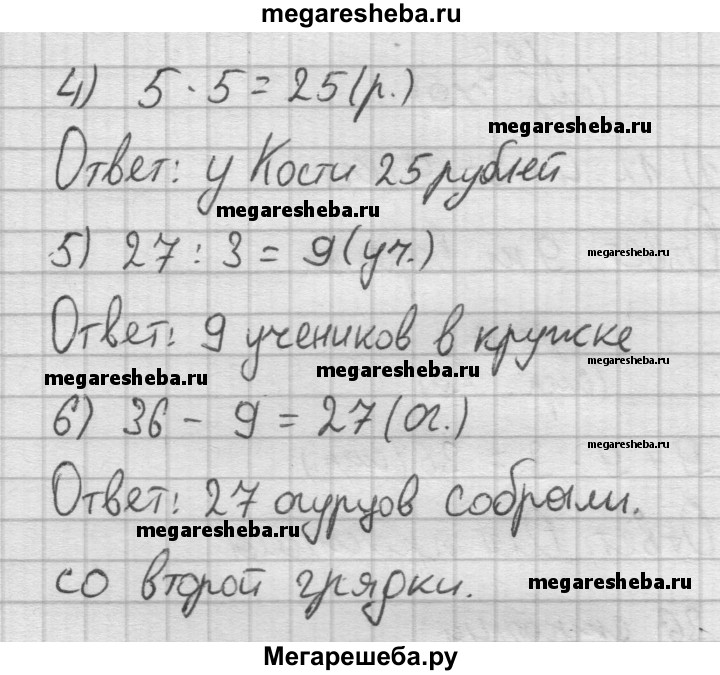 megaresheba.ru
4) 5 · 5 = 25 (р.)
megaresheba.ru
Ответ: у Кости 25 рублей
megaresheba.ru
5) 27 : 3 = 9 (уч.)
megaresheba.ru
Ответ: 9 учеников в кружке
megaresheba.ru
megaresheba.ru
megaresheba.ru
6) 36 - 9 = 27 (ог.)
megaresheba.ru
Ответ: 27 огурцов собрали.
megaresheba.ru
со второй грядки.
megaresheba.ru
Мегарешеба.ру